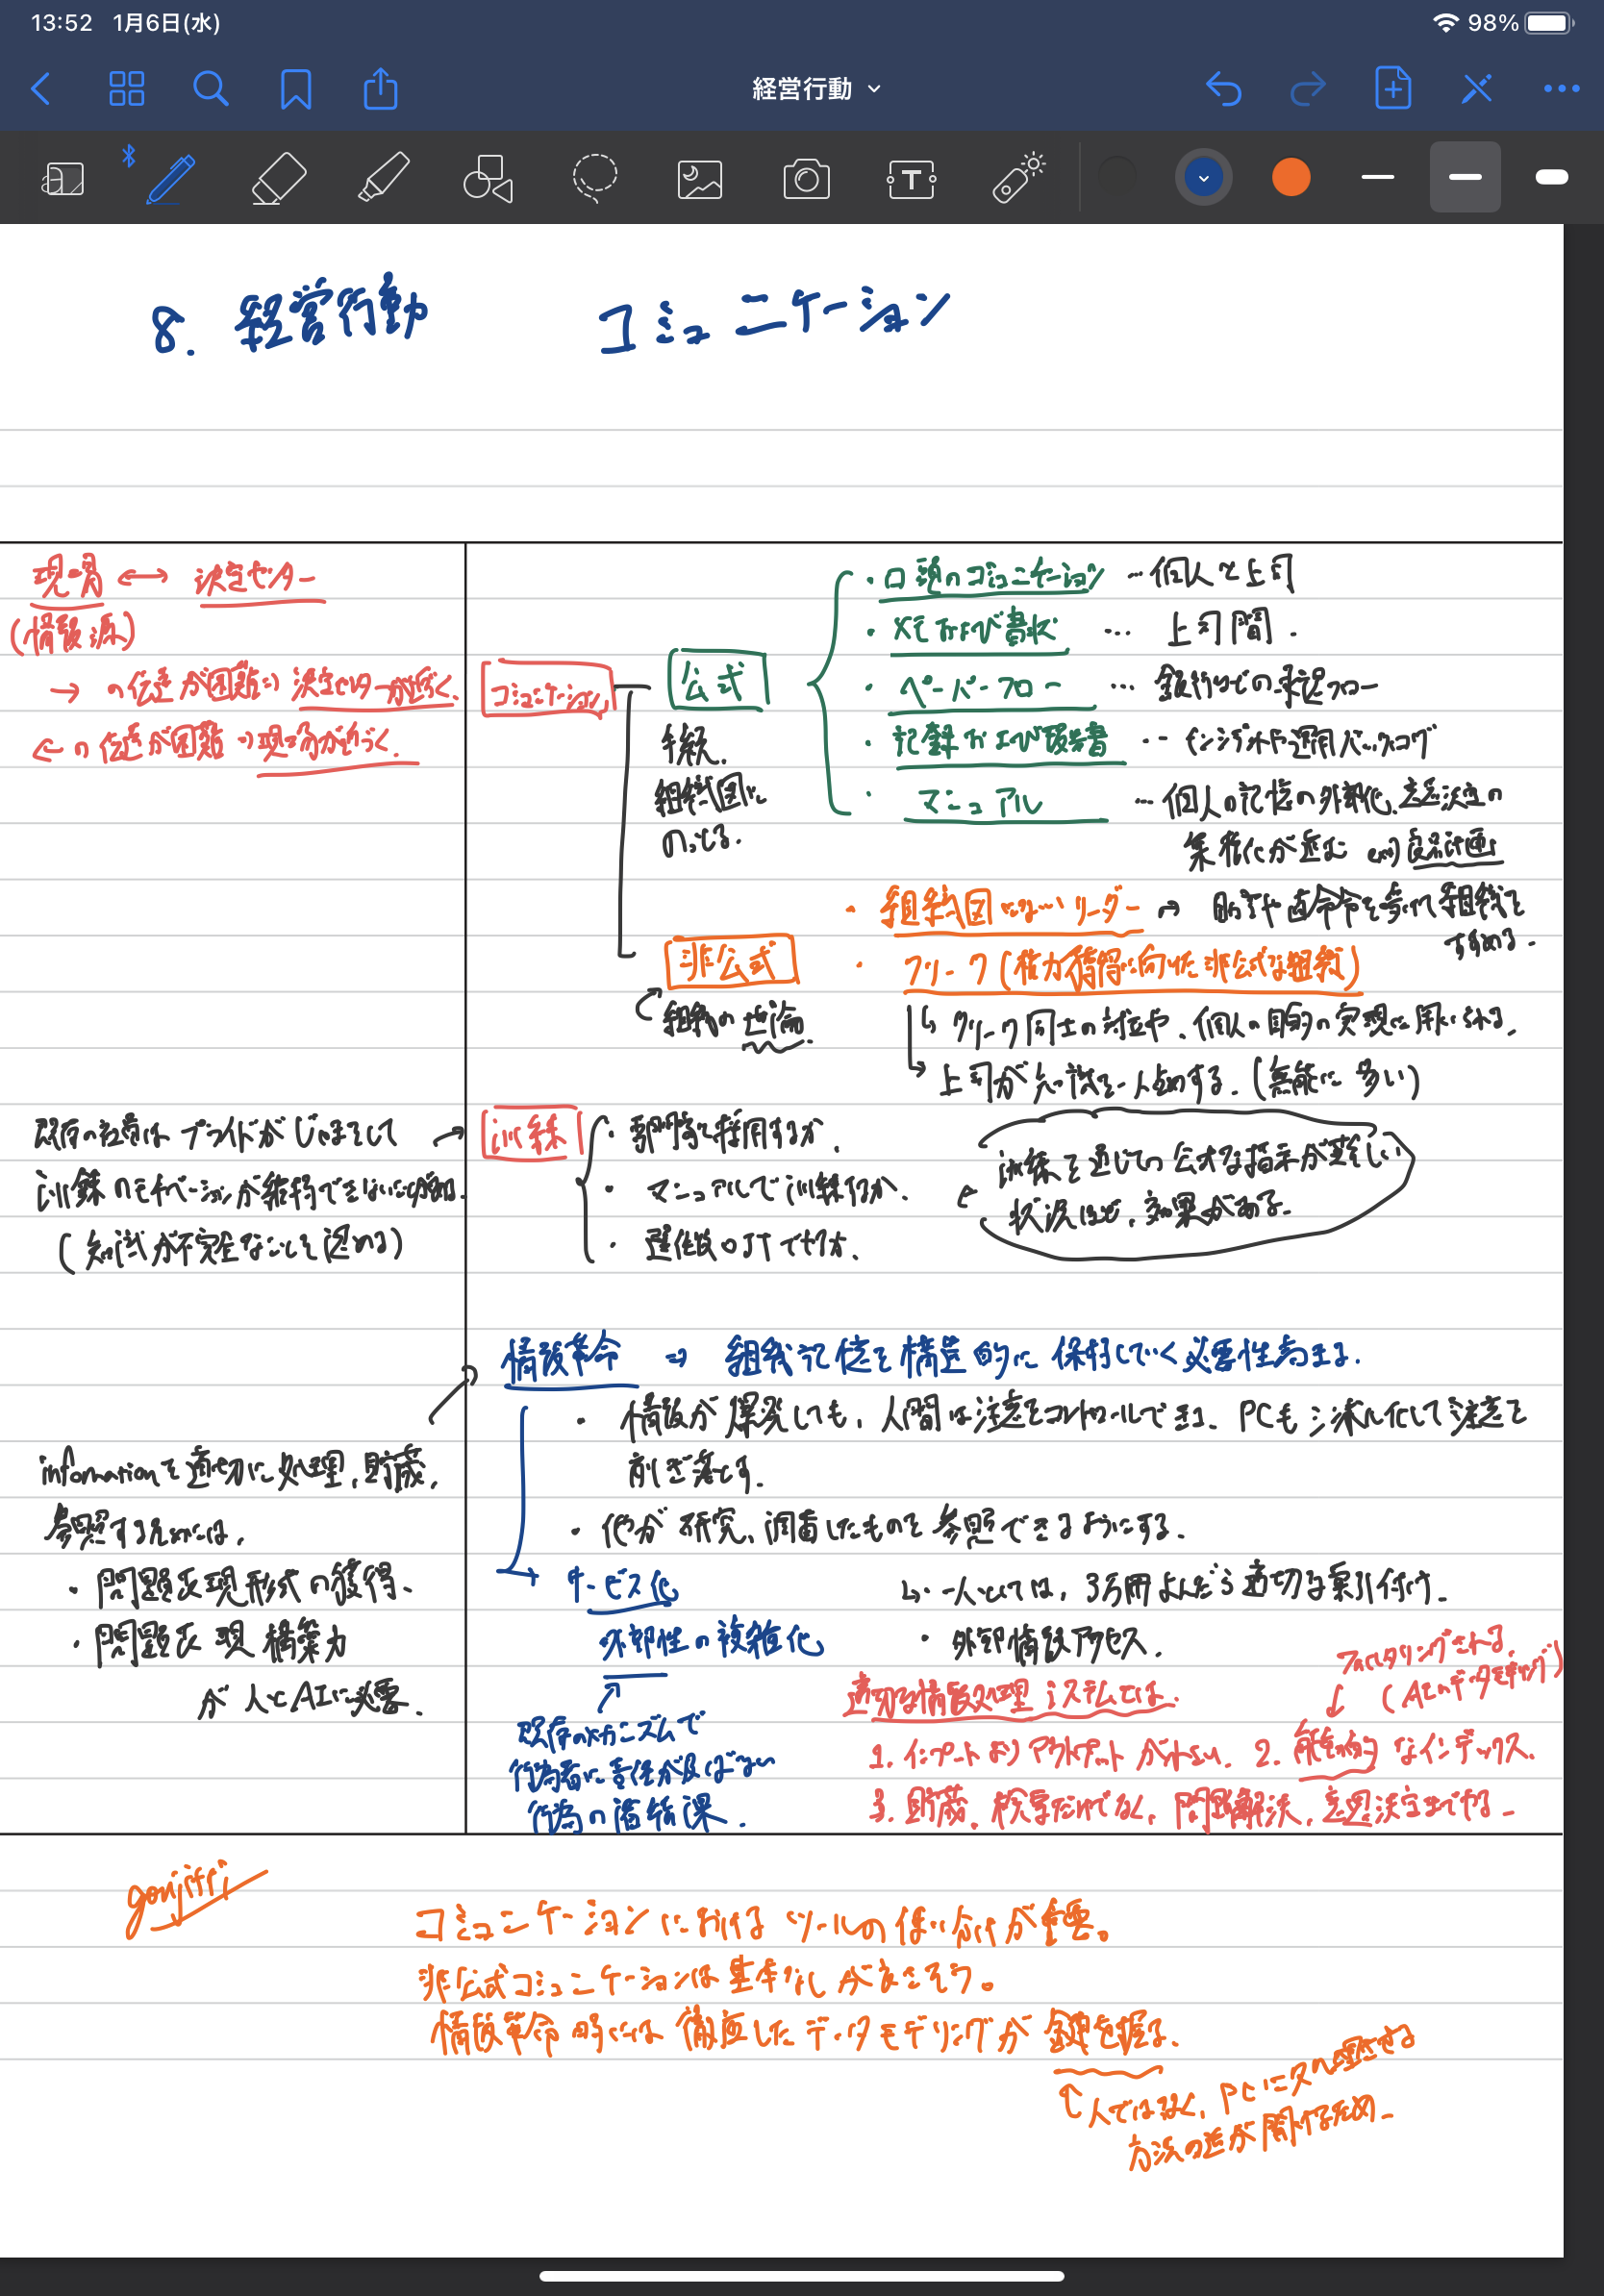 13:52 1月6日(水)
98%
経営行動
8. 経営行動 コミュニケーション
現場 ↔ 決定センター
(情報源)
→ の伝達が困難⇒決定センターが近づく.
← の伝達が困難⇒現場が近づく.
コミュニケーション
公式
手続.
組織図に
のってる.
・口頭のコミュニケーション …個人と上司
・メモおよび書状 … 上司間.
・ペーパーフロー … 銀行などの承認フロー
・記録および報告書 … インシデントや運用バックログ
・マニュアル … 個人の記憶の外部化、意思決定の
集権化が進む ex)
非公式
組織の世論
・組織図にないリーダー → 助言や
組織を
すすめる.
・クリーク(権力獲得に向けた非公式な組織)
↳ クリーク同士の対立や、個人の目的の実現に用いられる.
→ 上司が知識を一人占めする.(無能に多い)
既存の社員はプライドがじゃまをして
訓練のモチベーションが維持できないことが多い.
(知識が不完全なことを認める)
訓練
・専門家を採用するか.
・マニュアルで訓練するか.
・OJTでやるか.
訓練を通じての公式な指示が難しい
状況ほど、効果がある.
情報革命 ⇒ 組織記憶を構造的に保持していく必要性高まる.
・情報が爆発しても、人間は注意をコントロールできる. PCもシステム化して注意を
削ぎ落とす.
・他が研究、調査したものを参照できるようにする.
informationを適切に処理、貯蔵、
参照するためには、
・問題表現形式の獲得.
・問題表現構築力
が人とAIに必要.
→ サービス化
外部性の複雑化
既存のメカニズムで
行為者に責任が及ばない
行為の諸結果.
↳・一人としては、3万冊よんだら適切な索引付け.
・外部情報アクセス.
適切な情報処理システムとは.
フィルタリングされる.
1. インプットよりアウトプットが小さい. 2. 能動的なインデックス.
3. 貯蔵、検索だけでなく、問題解決、意思決定までやる.
gonjitti
コミュニケーションにおけるツールの使い分けが重要。
非公式コミュニケーションは基本なしが良さそう。
情報革命時には徹底したデータモデリングが鍵を握る.
↑人ではなく、PCに処理させる
方法の差が開くため.